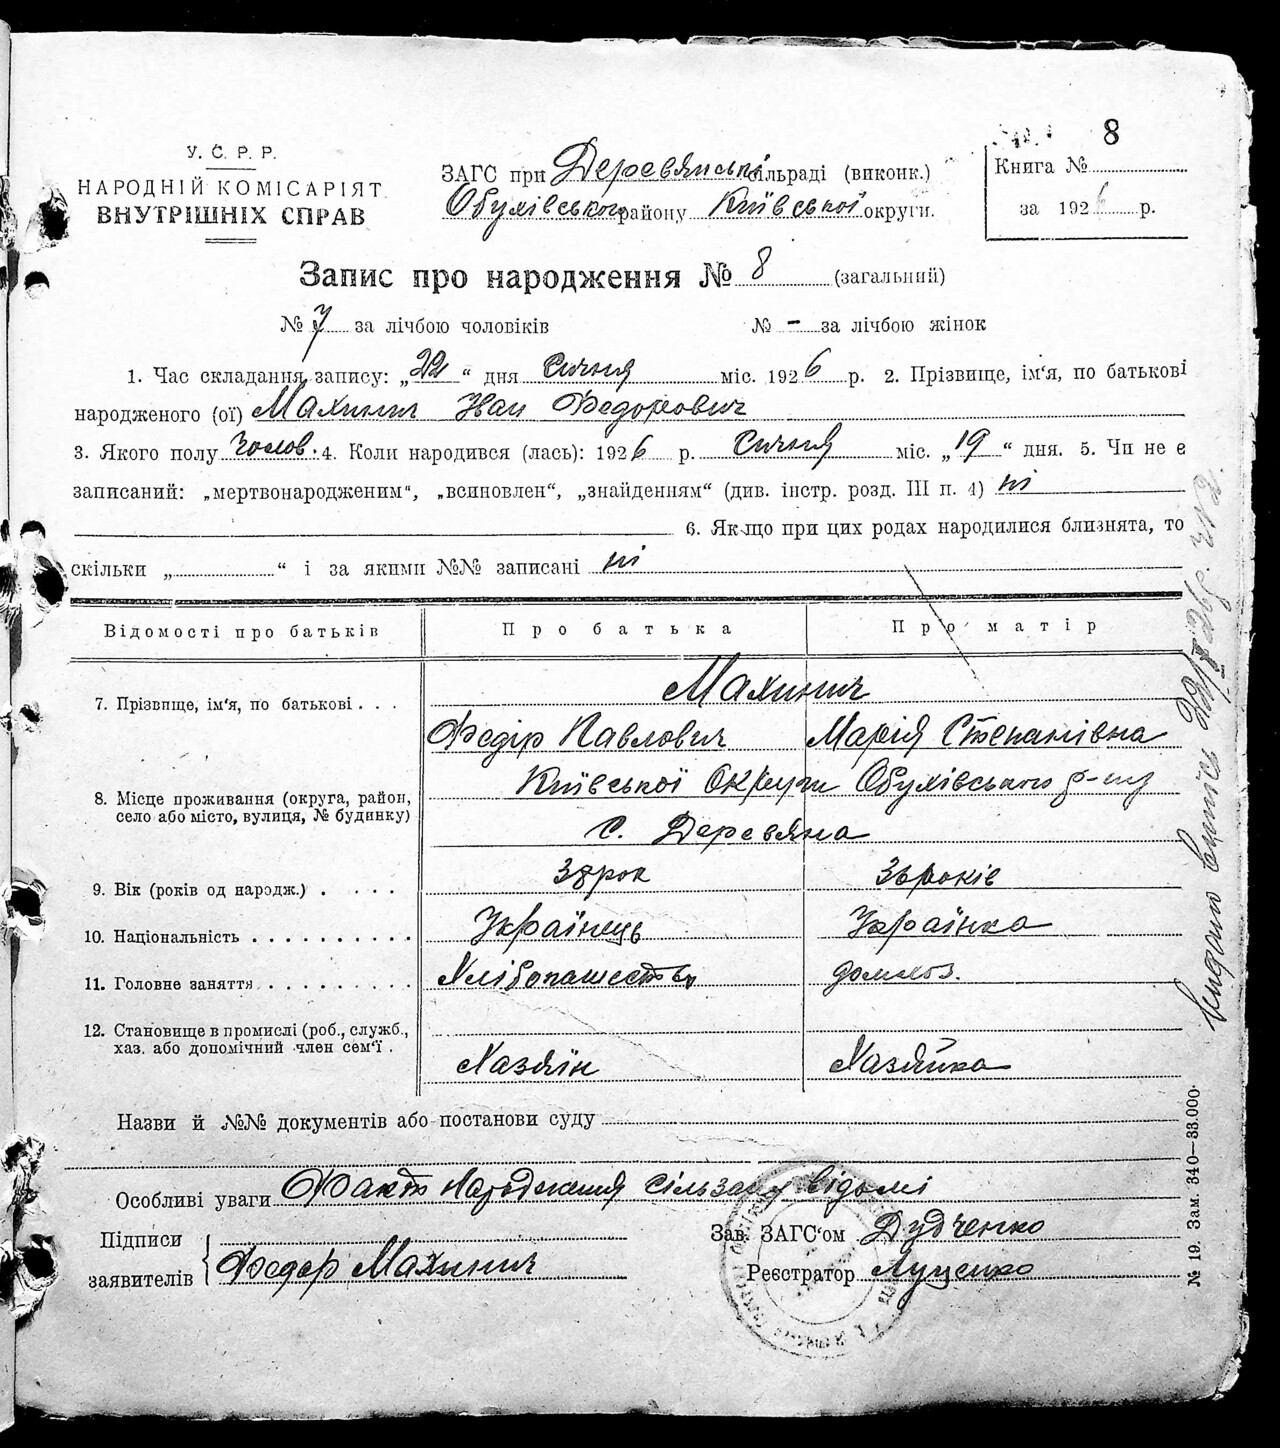 8
У. С. Р. Р.
НАРОДНІЙ КОМІСАРІЯТ
ВНУТРІШНІХ СПРАВ
ЗАГС при Деревянській сільраді (виконк.)
Обухівського району Київської округи.
Книга №
за 1926 р.
Запис про народження № 8 (загальний)
№ 7 за лічбою чоловіків № - за лічбою жінок
1. Час складання запису: „22“ дня Січня міс. 1926 р. 2. Прізвище, ім‘я, по батькові
народженого (ої) Махинич Іван Федорович
3. Якого полу Чолов. 4. Коли народився (лась): 1926 р. Січня міс. „19“ дня. 5. Чи не є
записаний: „мертвонародженим“, „всиновлен“, „знайденням“ (див. інстр. розд. III п. 4) ні
6. Якщо при цих родах народилися близнята, то
скільки „ “ і за якими №№ записані ні
Відомості про батьків Про батька Про матір
7. Прізвище, ім‘я, по батькові . . . Махинич
Федір Павлович Марія Степанівна
8. Місце проживання (округа, район, село або місто, вулиця, № будинку) Київської Округи Обухівського р-ну
с. Деревяна
9. Вік (років од нарэдж.) . . . . . 38 рок 36 років
10. Національність . . . . . . . . . . Українець Українка
11. Головне заняття . . . . . . . . . Хлібопашество домхоз.
12. Становище в промислі (роб., служб.,
хаз. або допомічний член сем‘ї . Хазяїн Хазяйка
Назви й №№ документів або постанови суду
Особливі уваги Факт Народження відомі
Підписи
заявителів Федор Махинич
Зав. ЗАГС‘ом Дудченко
Реєстратор Луценко
№ 19. Зам. 340—33.000.
видано випись